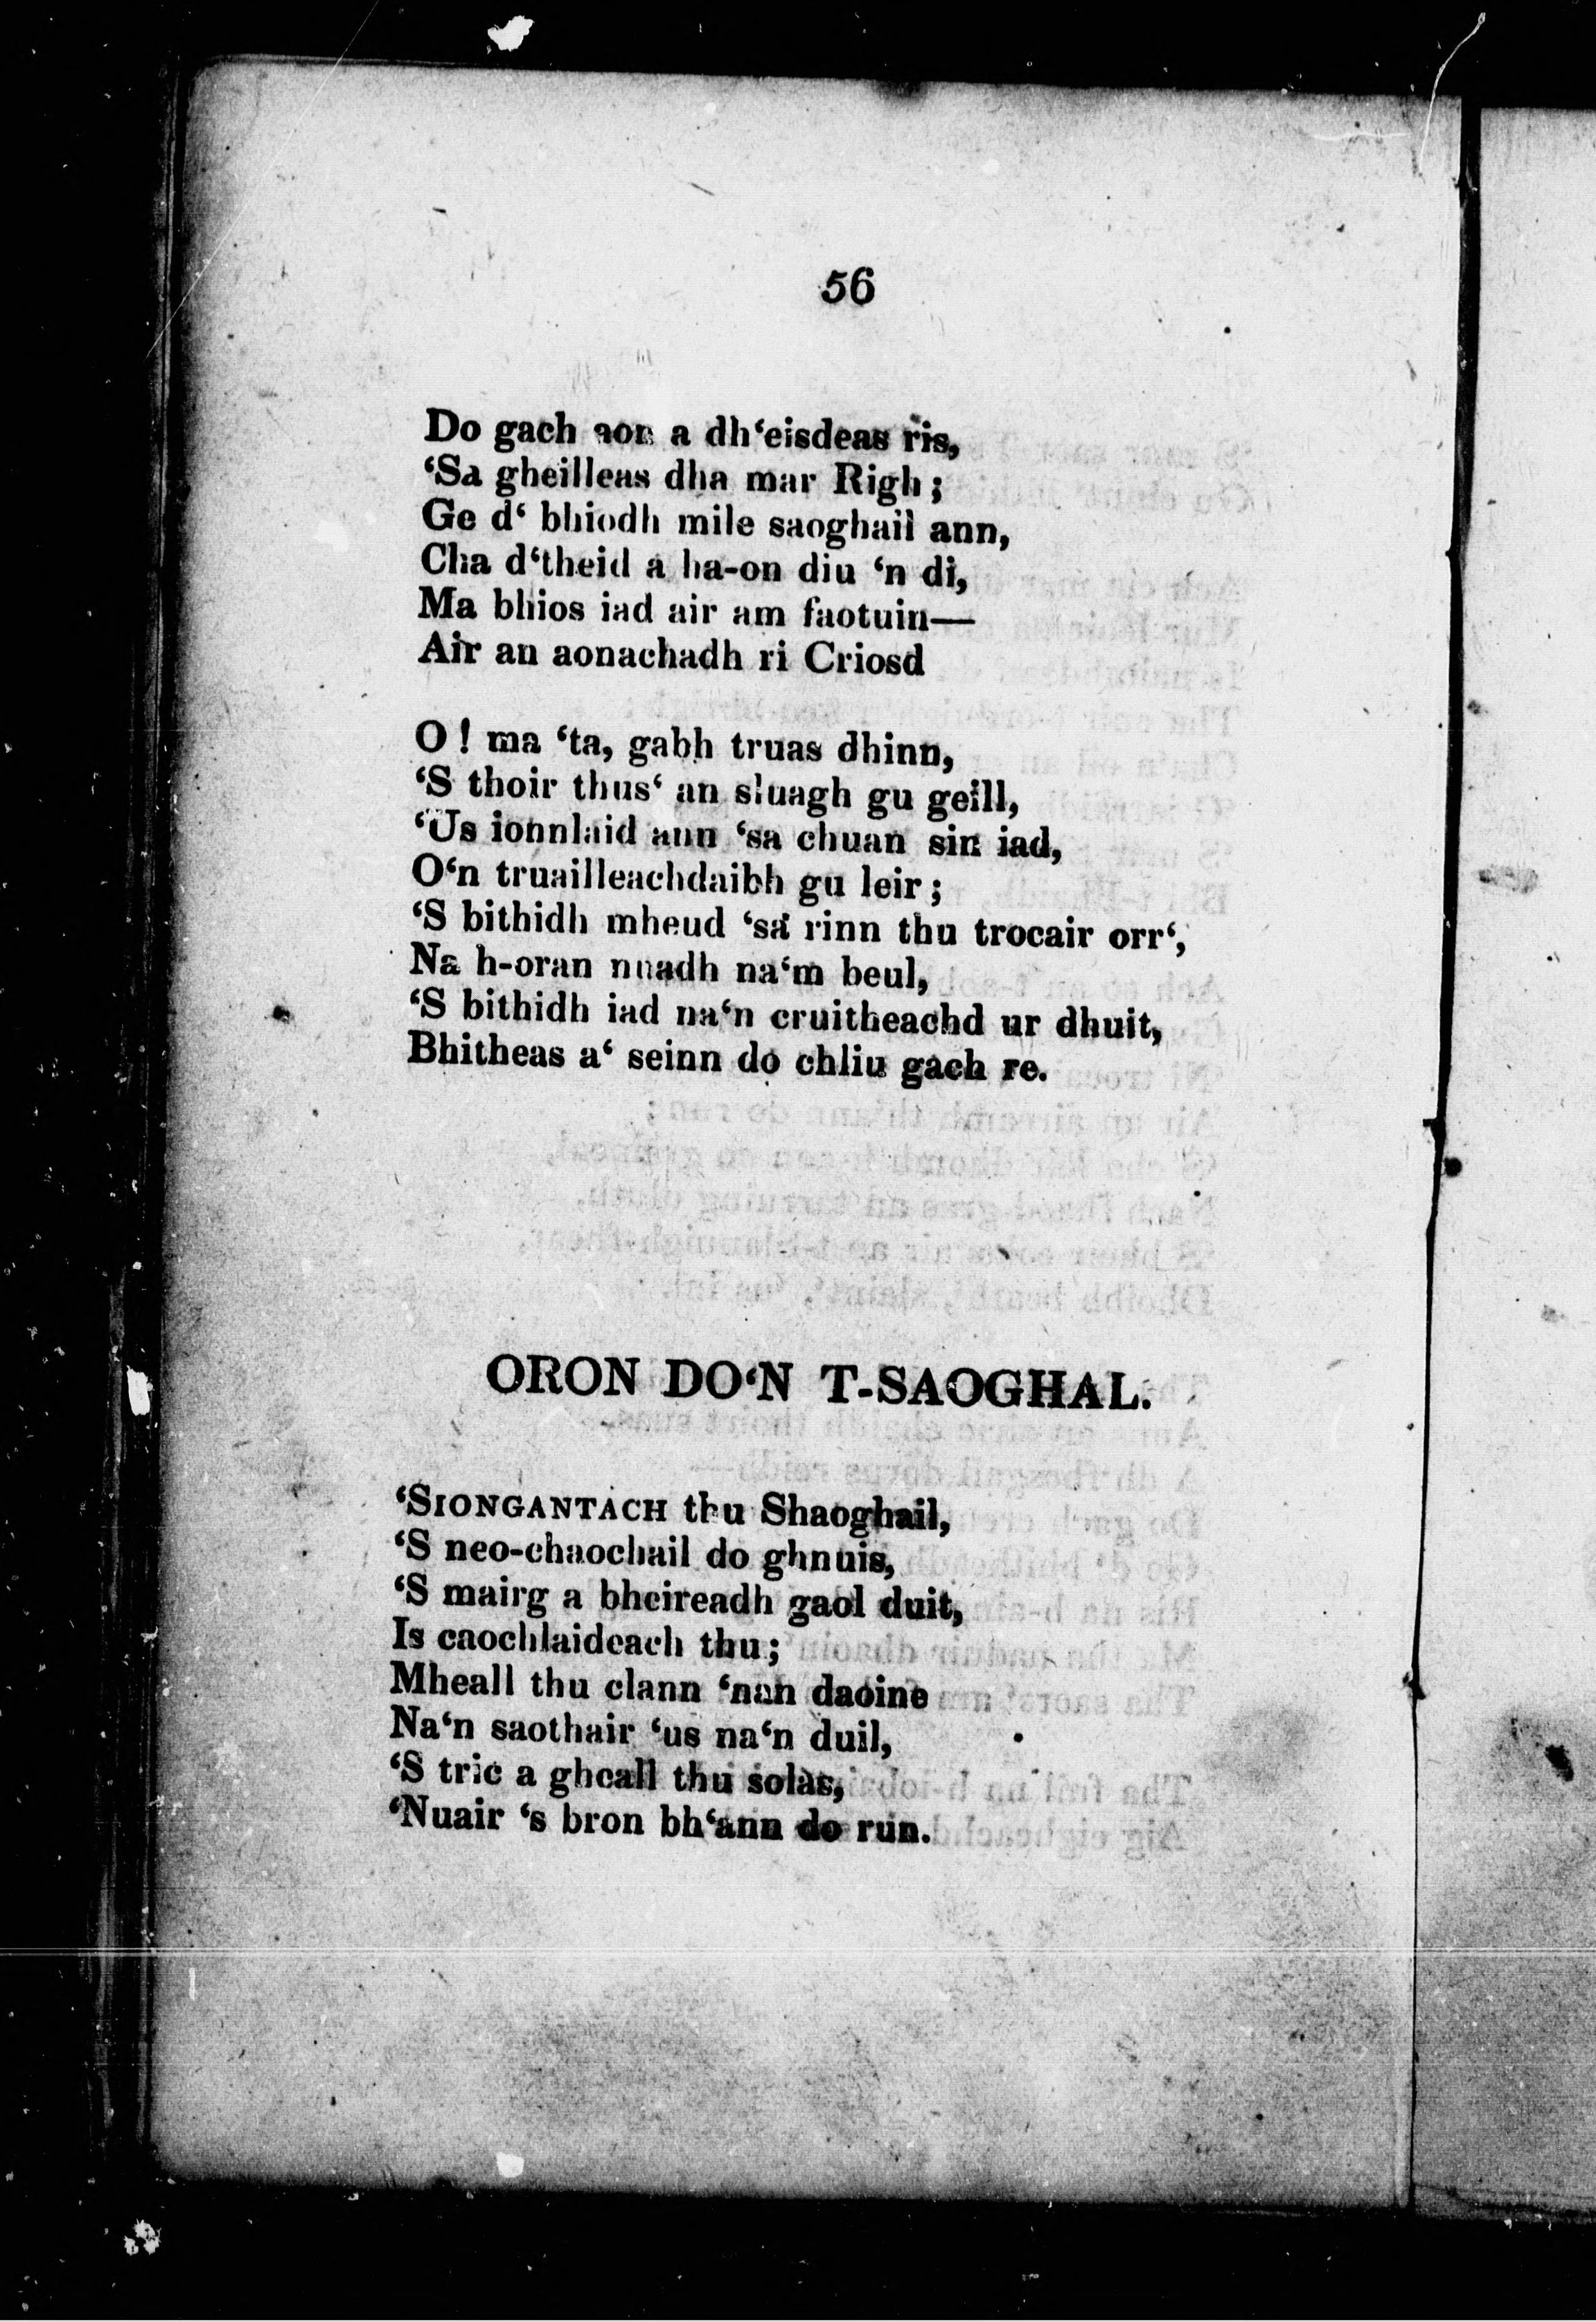 56
Do gach aon a dh‘eisdeas ris,
‘Sa gheilleas dha mar Righ;
Ge d‘ bhiodh mile saoghail ann,
Cha d‘theid a ha-on diu ‘n di,
Ma bhios iad air am faotuin—
Air an aonachadh ri Criosd
O! ma ‘ta, gabh truas dhinn,
‘S thoir thus‘ an sluagh gu geill,
‘Us ionnlaid ann ‘sa chuan sin iad,
O‘n truailleachdaibh gu leir;
‘S bithidh mheud ‘sa rinn thu trocair orr‘,
Na h-oran nuadh na‘m beul,
‘S bithidh iad na‘n cruitheachd ur dhuit,
Bhitheas a‘ seinn do chliu gach re.
ORON DO‘N T-SAOGHAL.
‘SIONGANTACH thu Shaoghail,
‘S neo-chaochail do ghnuis,
‘S mairg a bheireadh gaol duit,
Is caochlaideach thu;
Mheall thu clann ‘nan daoine
Na‘n saothair ‘us na‘n duil,
‘S tric a gheall thu solas,
‘Nuair ‘s bron bh‘ann do run.